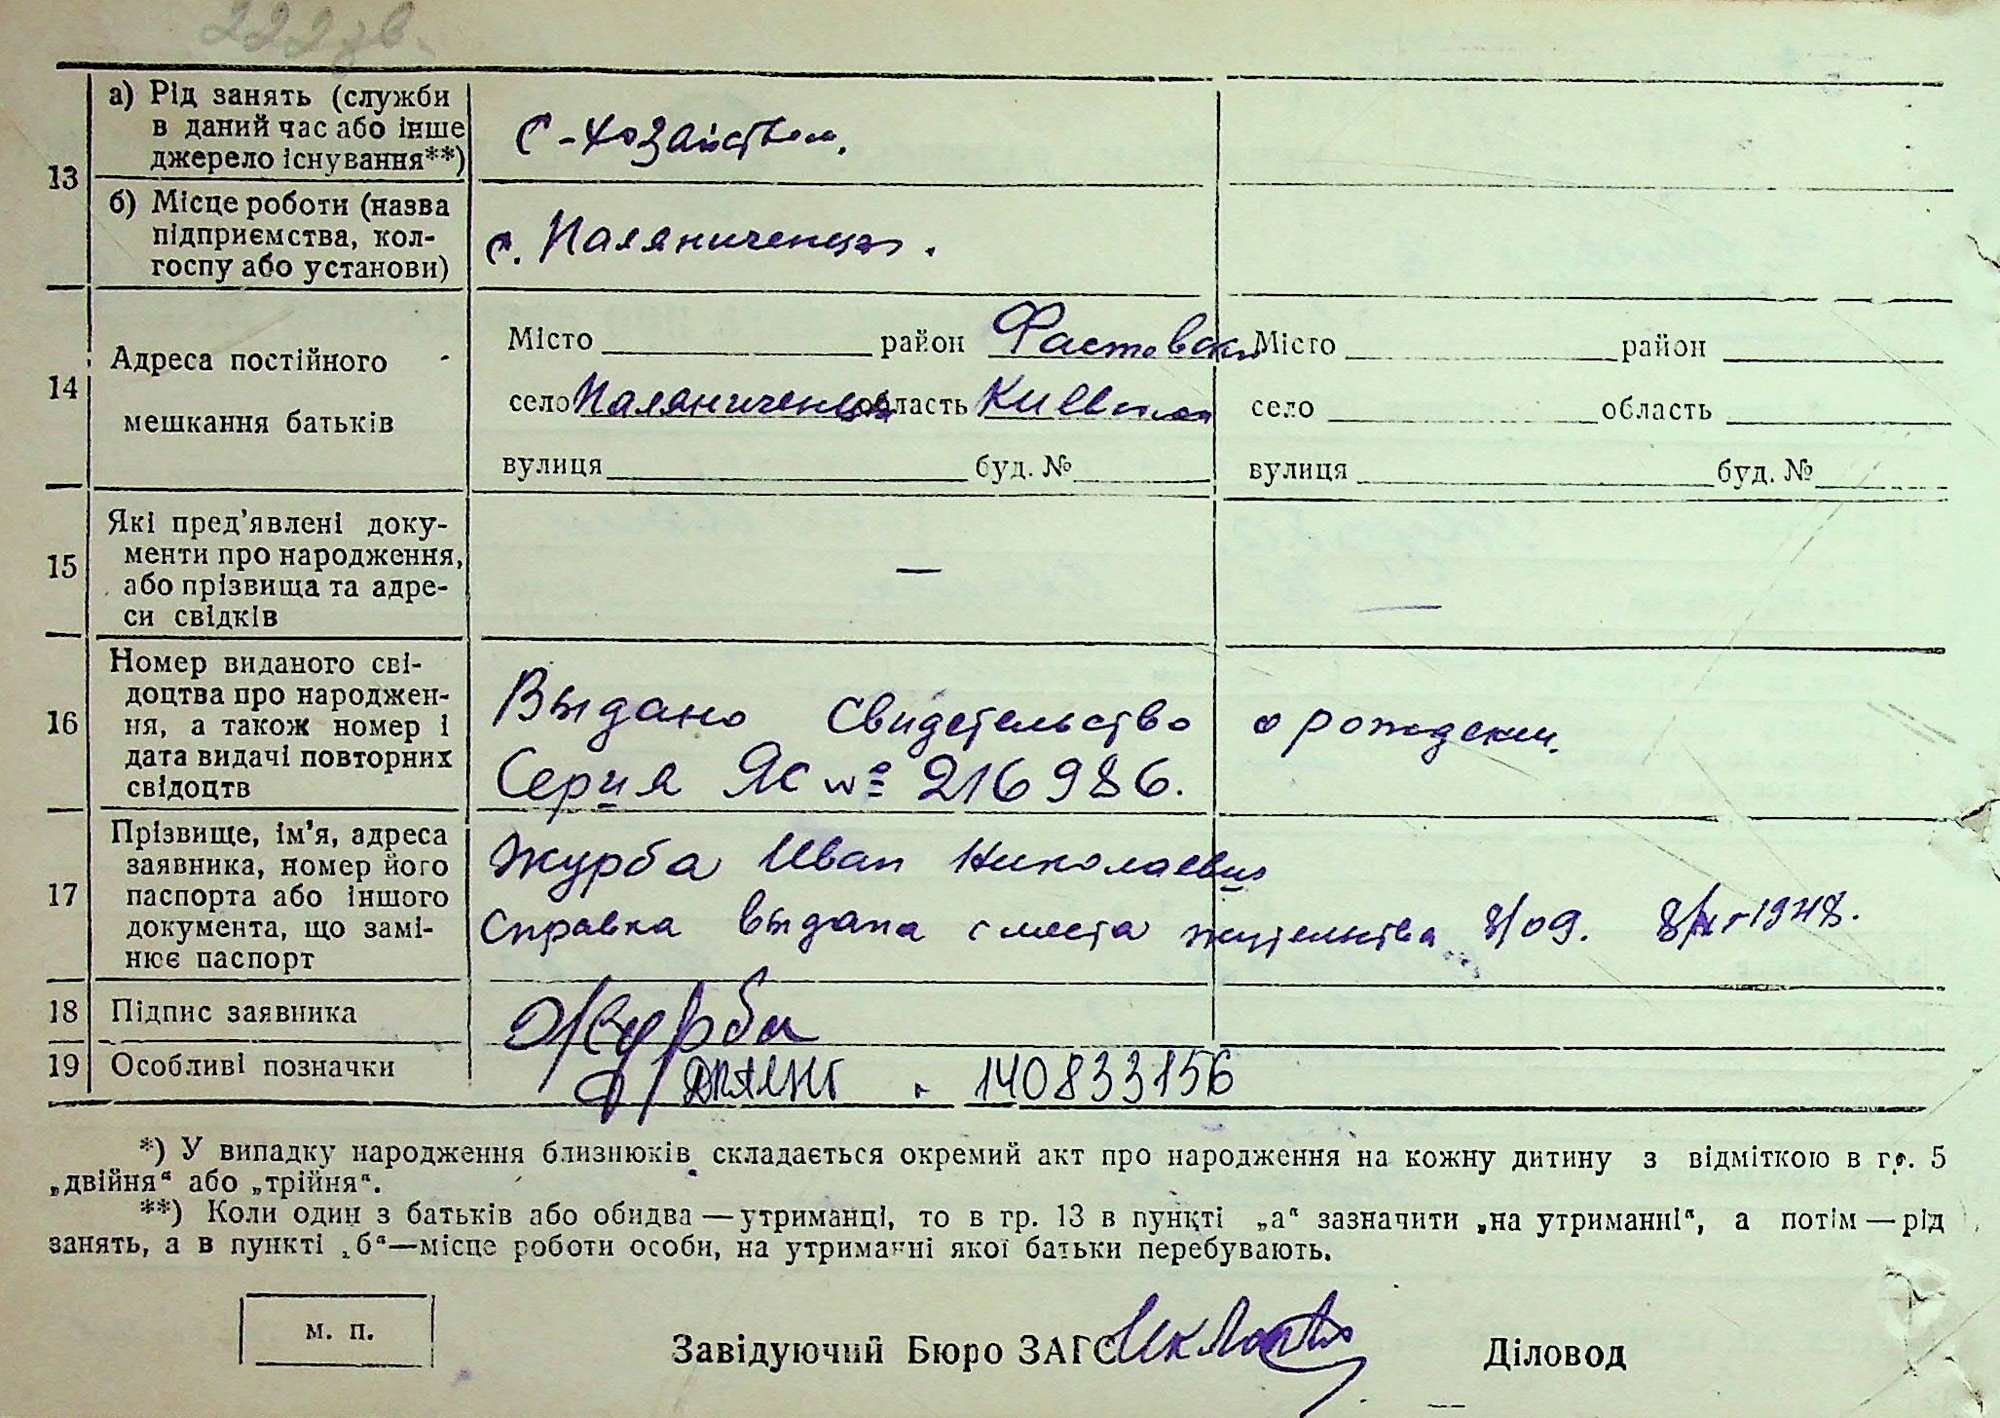 222 зв.
а) Рід занять (служби
в даний час або інше
джерело існування**)
С-хозайством.
13
б) Місце роботи (назва
підприємства, кол-
госпу або установи)
с. Паляниченцах.
14
Адреса постійного
мешкання батьків
Місто район Фастовский
село Паляниченця область Киевская
вулиця буд. №
Місто район
село область
вулиця буд. №
15
Які пред’явлені доку-
менти про народження,
або прізвища та адре-
си свідків
—
—
16
Номер виданого сві-
доцтва про народжен-
ня, а також номер і
дата видачі повторних
свідоцтв
Выдано свидетельство о рождении.
Серия ЯС № 216986.
17
Прізвище, ім’я, адреса
заявника, номер його
паспорта або іншого
документа, що замі-
нює паспорт
Журба Иван Николаевич
Справка выдана с места жительства 8/09. 1948.
18
Підпис заявника
Журба
19
Особливі позначки
140833156
*) У випадку народження близнюків складається окремий акт про народження на кожну дитину з відміткою в гр. 5
„двійня“ або „трійня“.
**) Коли один з батьків або обидва — утриманці, то в гр. 13 в пункті „а“ зазначити „на утриманні“, а потім — рід
занять, а в пункті „б“—місце роботи особи, на утриманні якої батьки перебувають.
м. п.
Завідуючий Бюро ЗАГС
Діловод